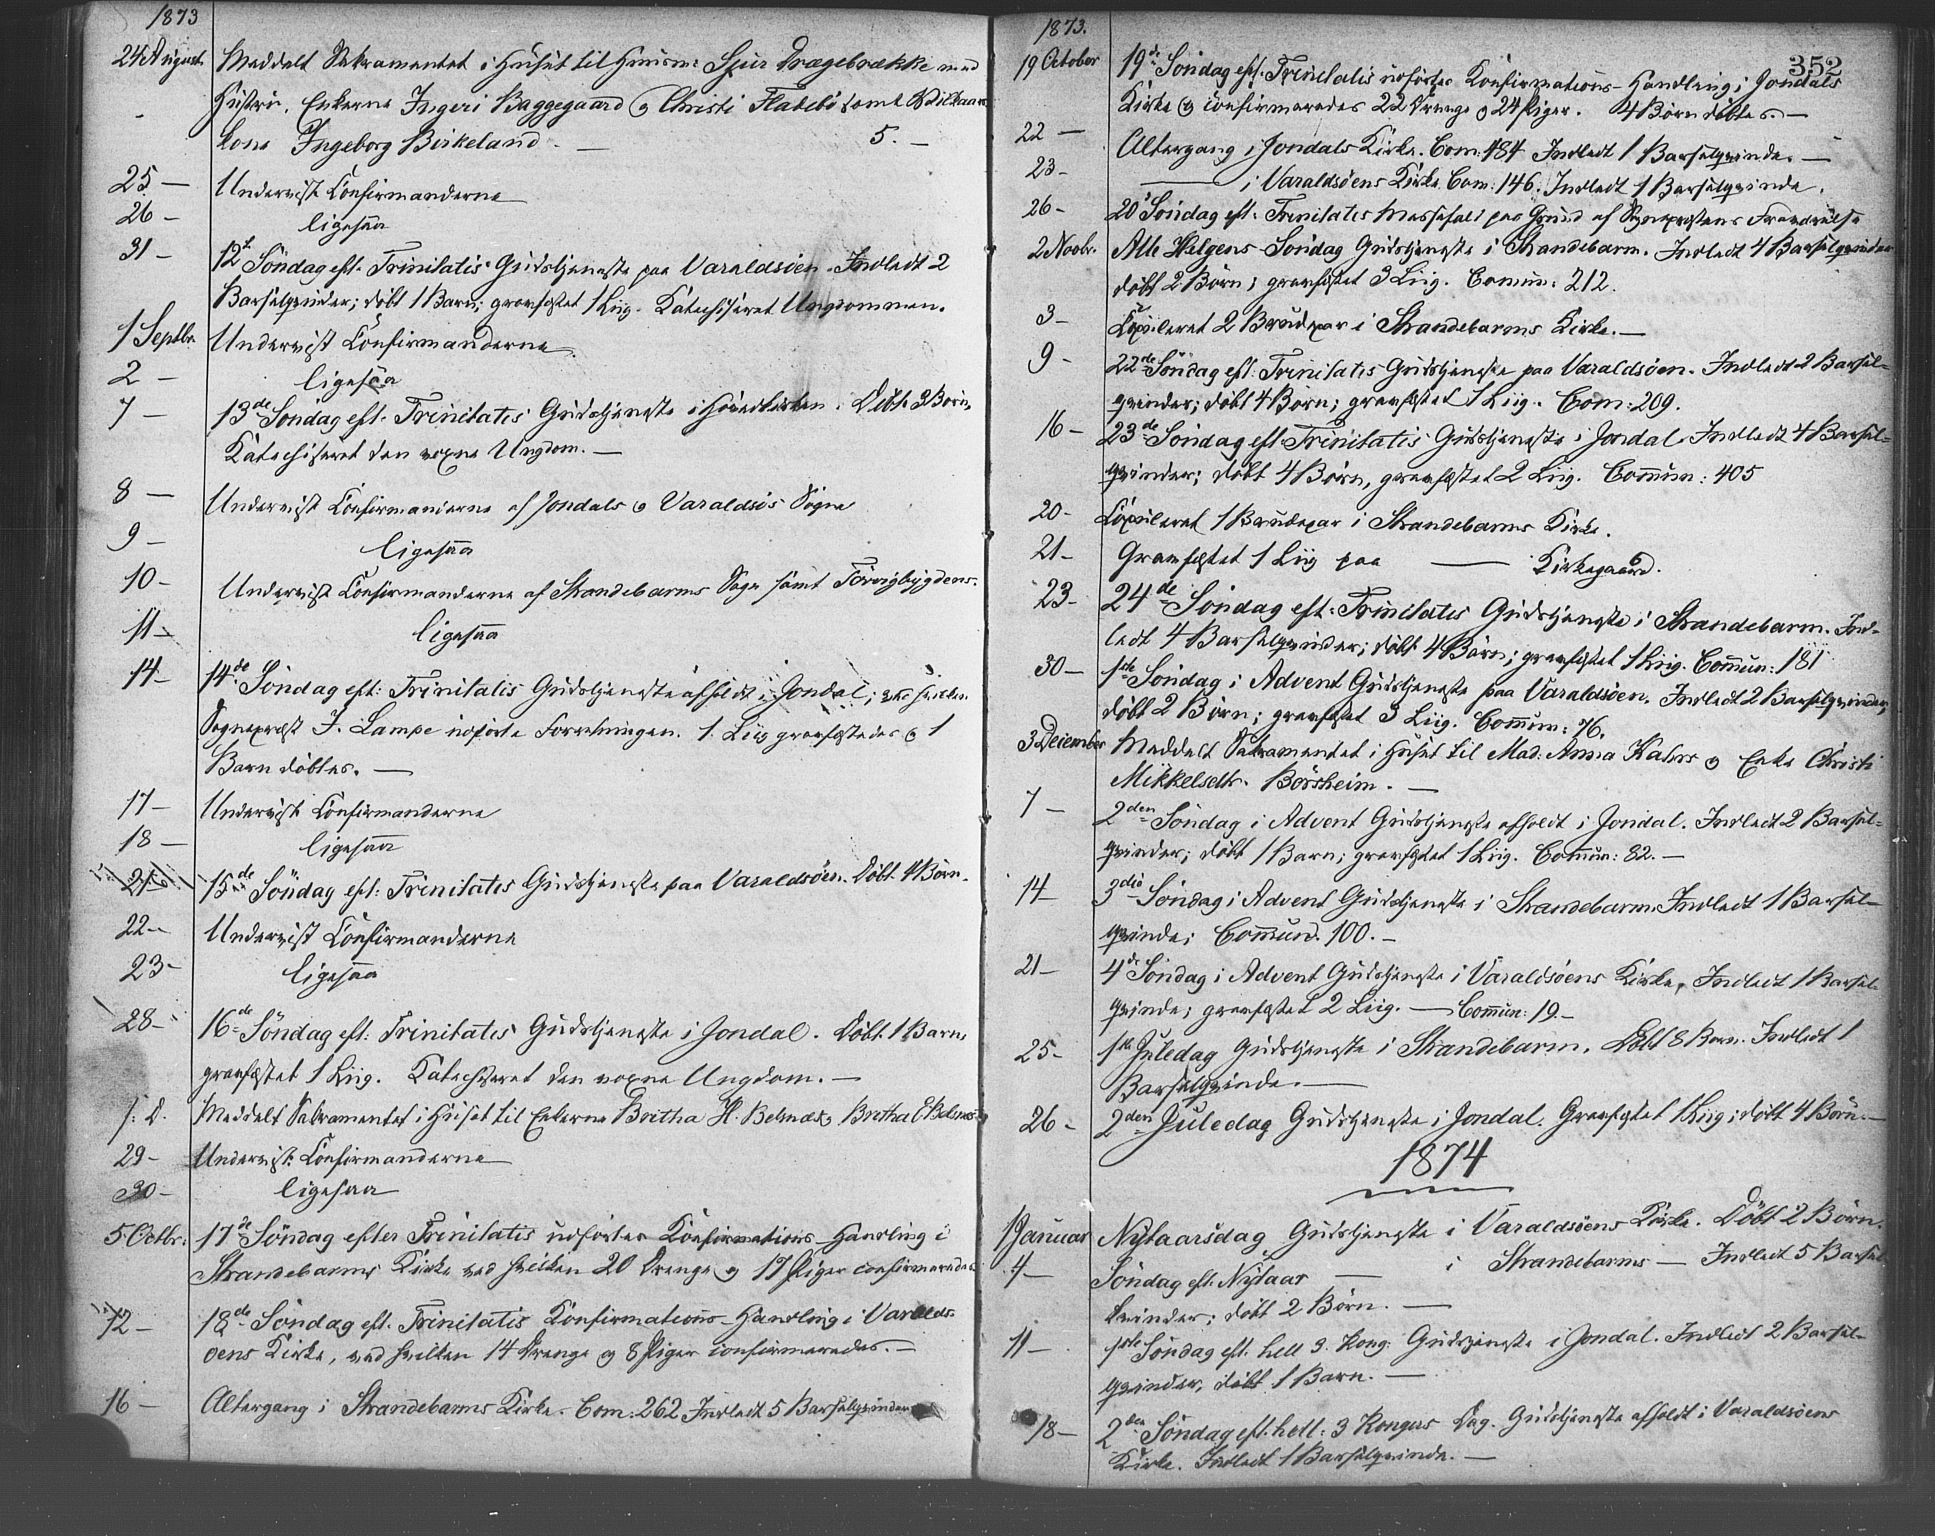 1873
24 August. Meddelt Sakramentet i Huset til Huusm: Sjur Drægebrække med
Hustru, Enkerne Ingeri Baggegaard og Christi Flatebø samt Vilkaars-
kone Ingeborg Birkeland. — 5. —
25 — Underviist Confirmanderne
26 — ligesaa
31 — 12te Söndag eft. Trinitatis Gudstjeneste paa Varaldsöen. Indledt 2
Barselqvinder; döbt 1 Barn; gravfæstet 1 Liig. Katechiseret Ungdommen.
1 Septbr. Underviist Confirmanderne
2 — ligesaa
7 — 13de Söndag eft. Trinitatis Gudstjeneste i Hovedkirken. Döbt 3 Börn,
Katechiseret den voxne Ungdom. —
8 — Underviist Confirmanderne af Jondals og Varaldsös Sogne
9 — ligesaa
10 — Underviist Confirmanderne af Strandebarms Sogn samt Torvigbygdens.
11 — ligesaa
14 — 14de Söndag eft: Trinitatis Gudstjeneste afholdt i Jondal; ved hvilken
Sognepræst J. Lampe udförte Forretningen. 1 Liig gravfæstedes og 1
Barn döbtes. —
17 — Underviist Confirmanderne
18 — ligesaa
21 — 15de Söndag eft: Trinitatis Gudstjeneste paa Varaldsöen. Döbt 4 Börn.
22 — Underviist Confirmanderne
23 — ligesaa
28 — 16de Söndag eft: Trinitatis Gudstjeneste i Jondal. Döbt 1 Barn,
gravfæstet 1 Liig. Katechiseret den voxne Ungdom. —
s: D. Meddelt Sakramentet i Huset til Enkerne Britha H. Belsnæs, Britha E Belsnæs
29 — Underviist Confirmanderne
30 — ligesaa
5 Octbr. 17de Söndag efter Trinitatis udfortes Konfirmations-Handling i
Strandebarms Kirke ved hvilken 20 Drenge og 17 Piger confirmeredes
12 — 18de Söndag eft. Trinitatis Konfirmations-Handling i Varalds-
öens Kirke, ved hvilken 14 Drenge og 8 Piger confirmeredes. —
16 — Altergang i Strandebarms Kirke. Com: 262 Indledt 5 Barselqvinder
1873.
352
19 October 19de Söndag eft. Trinitatis udförtes Konfirmations-Handling i Jondals
Kirke og confirmeredes 22 Drenge og 24 Piger. 4 Börn döbtes. —
22 — Altergang i Jondals Kirke. Com: 484 Indledt 1 Barselqvinde. —
23 — — i Varaldsöens Kirke. Com: 146. Indledt 1 Barselqvinde.
26 — 20de Söndag eft. Trinitatis Messefald paa Grund af Sognepræstens Fraværelse
2 Novbr. Alle Helgens Söndag Gudstjeneste i Strandebarm. Indledt 4 Barselqvinder
döbt 2 Börn; gravfæstet 3 Liig. Comun: 212.
3 — Copuleret 2 Brudepar i Strandebarms Kirke. —
9 — 22de Söndag eft: Trinitatis Gudstjeneste paa Varaldsöen. Indledt 2 Barsel-
qvinder; döbt 4 Börn; gravfæstet 1 Liig. Com: 209.
16 — 23de Söndag eft. Trinitatis Gudstjeneste i Jondal. Indledt 4 Barsel-
qvinder; döbt 4 Börn, gravfæstet 2 Liig. Comun: 405
20 — Copuleret 1 Brudepar i Strandebarms Kirke.
21 — Gravfæstet 1 Liig paa — Kirkegaard.
23 — 24de Söndag eft: Trinitatis Gudstjeneste i Strandebarm. Ind-
ledt 4 Barselqvinder; döbt 4 Börn; gravfæstet 1 Liig. Comun: 181
30 — 1ste Söndag i Advent Gudstjeneste paa Varaldsöen. Indledt 2 Barselqvinder,
döbt 2 Börn; gravfæstet 3 Liig. Comun: 76.
3 December Meddelt Sakramentet i Huset til Mad: Anna Kahrs og Enke Christi
Mikkelsdtr. Börsheim. —
7 — 2den Söndag i Advent Gudstjeneste afholdt i Jondal. Indledt 2 Barsel-
qvinder; döbt 1 Barn; gravfæstet 1 Liig. Comun: 82. —
14 — 3die Söndag i Advent Gudstjeneste i Strandebarm. Indledt 1 Barsel-
qvinde; Comun. 100. —
21 — 4de Söndag i Advent Gudstjeneste i Varaldsöens Kirke, Indledt 1 Barsel-
qvinde; gravfæstet 2 Liig. — Comun: 19. —
25 — 1ste Juledag Gudstjeneste i Strandebarm. Döbt 8 Börn. Indledt 1
Barselqvinde. —
26 — 2den Juledag Gudstjeneste i Jondal. Gravfæstet 1 Liig; döbt 4 Börn. —
1874
1 Januar Nytaarsdag Gudstjeneste i Varaldsöens Kirke. Döbt 2 Börn.
4 — Söndag eft. Nytaar — i Strandebarms — Indledt 5 Barsel-
kvinder; döbt 2 Börn. —
11 — 1ste Söndag eft. hell 3. Kong. Gudstjeneste i Jondal. Indledt 2 Barsel-
qvinder, döbt 1 Barn. —
18 — 2den Söndag eft. hell: 3 Kongers Dag. Gudstjeneste afholdt i Varaldsöens
Kirke. Indledt 1 Barselqvinde. —